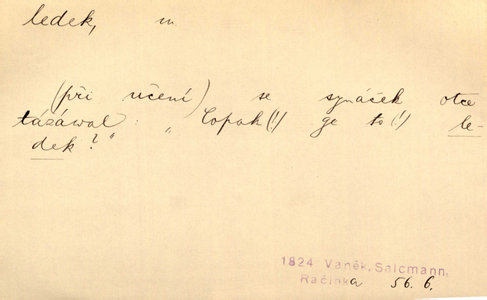 ledek, m
(při učení) se synáček otce
tázáwal: „Copak(!) ge to(!) le-
dek?"
1824 Vaněk, Salcmann,
Račinka 56. 6.